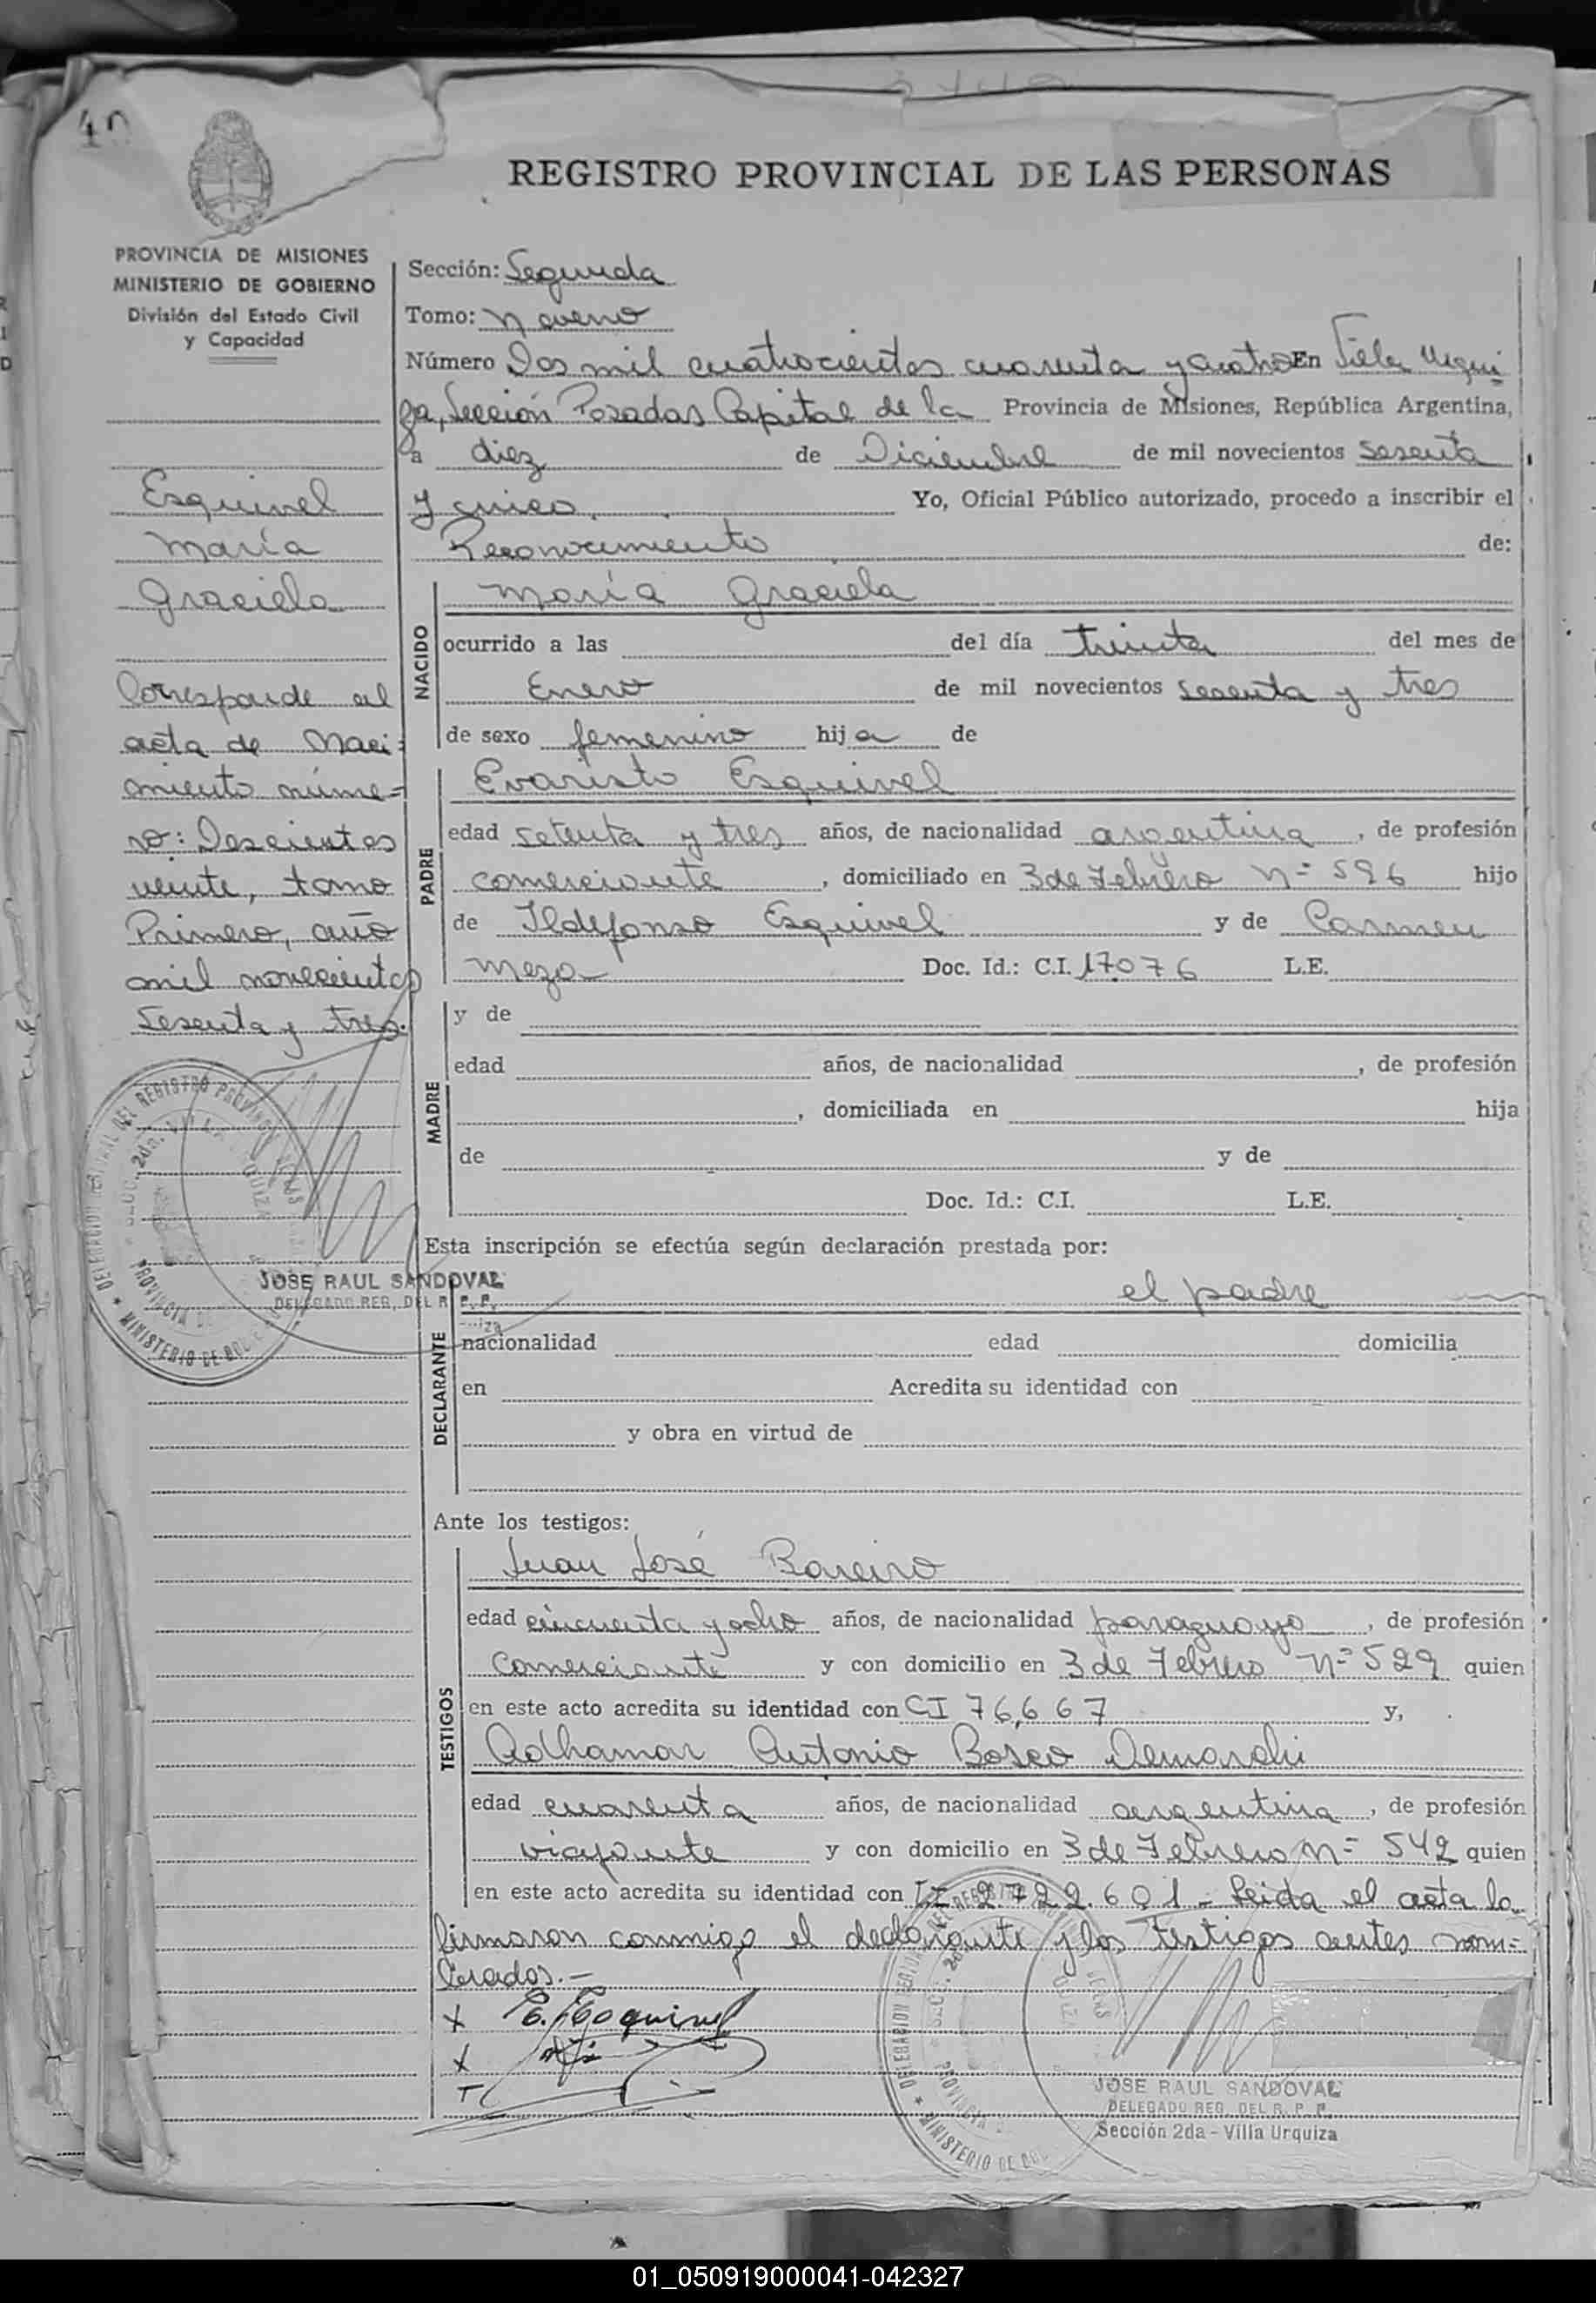 REGISTRO PROVINCIAL DE LAS PERSONAS
PROVINCIA DE MISIONES
MINISTERIO DE GOBIERNO
División del Estado Civil
y Capacidad
Esquivel
María
Graciela
Corresponde al
acta de Naci=
miento núme=
ro: Doscientos
veinte, tomo
Primero, año
mil novecientos
Sesenta y tres.
JOSE RAUL SANDOVAL
DELEGADO REG. DEL R. P. P.
Sección: Segunda
Tomo: Noveno
Número Dos mil cuatrocientos cuarenta y cuatro En Villa Urqui
za, Sección Posadas Capital de la Provincia de Misiones, República Argentina,
a diez de Diciembre de mil novecientos sesenta
y cinco. Yo, Oficial Público autorizado, procedo a inscribir el
Reconocimiento de:
NACIDO
María Graciela
ocurrido a las del día treinta del mes de
Enero de mil novecientos sesenta y tres
de sexo femenino hija de
PADRE
Evaristo Esquivel
edad setenta y tres años, de nacionalidad argentina, de profesión
comerciante, domiciliado en 3 de Febrero Nº 596 hijo
de Ildefonso Esquivel y de Carmen
Meza Doc. Id.: C.I. 17.076 L.E.
MADRE
y de
edad años, de nacionalidad , de profesión
, domiciliada en hija
de y de
Doc. Id.: C.I. L.E.
Esta inscripción se efectúa según declaración prestada por:
DECLARANTE
el padre
nacionalidad edad domicilia
en Acredita su identidad con
y obra en virtud de
Ante los testigos:
TESTIGOS
Juan José Bareiro
edad cincuenta y ocho años, de nacionalidad paraguayo, de profesión
Comerciante y con domicilio en 3 de Febrero Nº 529 quien
en este acto acredita su identidad con CI 76,667 y,
Adhamar Antonio Bosco Demarchi
edad cuarenta años, de nacionalidad argentina, de profesión
viajante y con domicilio en 3 de Febrero Nº 542 quien
en este acto acredita su identidad con 2.722.601.- Leida el acta la
firmaron conmigo el declarante y los testigos antes nom=
brados.-
x E. Esquivel
x
JOSE RAUL SANDOVAL
DELEGADO REG. DEL R. P. P.
Sección 2da - Villa Urquiza
01_050919000041-042327